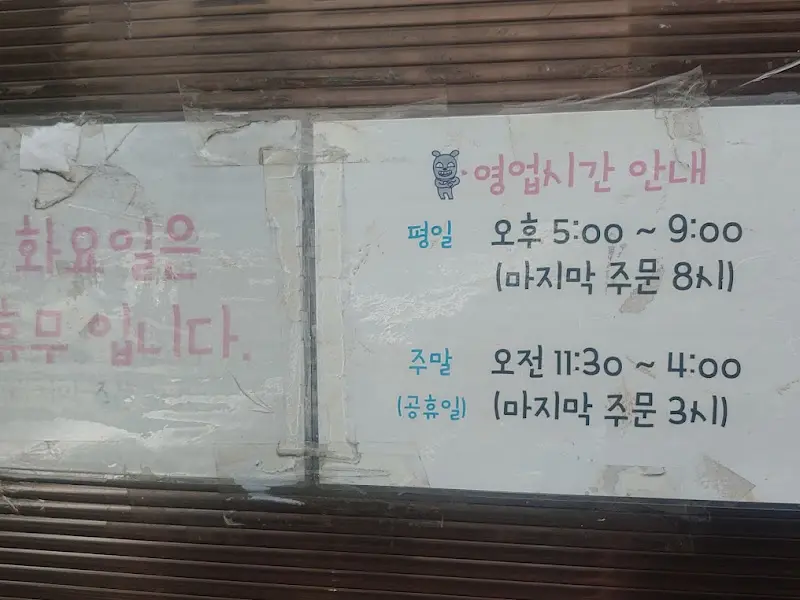 화요일은
휴무 입니다.
영업시간 안내
평일 오후 5:00 ~ 9:00
(마지막 주문 8시)
주말 오전 11:30 ~ 4:00
(공휴일) (마지막 주문 3시)